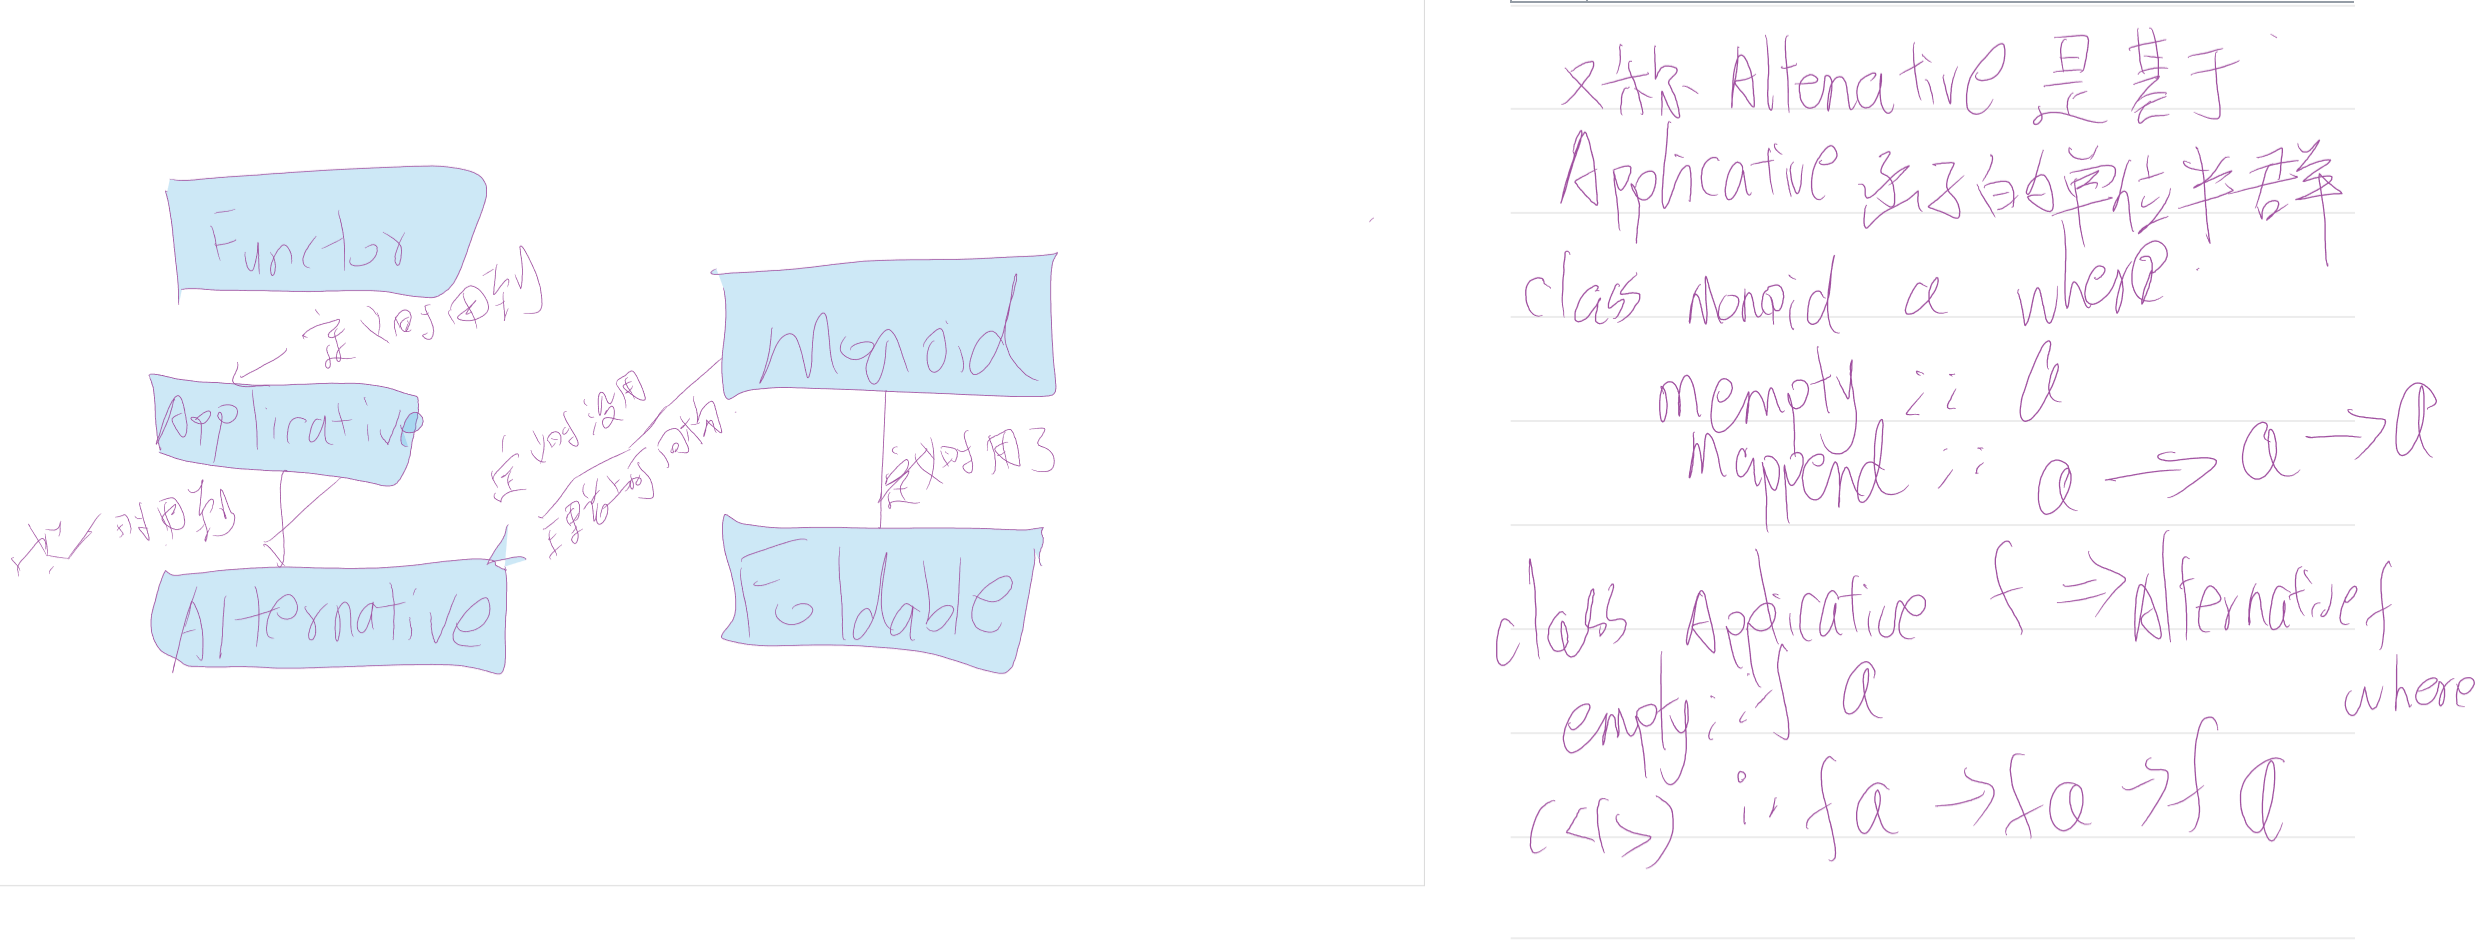 Functor
定义时用到
Applicative
定义时用到
Alternative
Monoid
定义时没用
定义时用了
Foldable
又称 Altenative 是基于
Applicative 函子的单位半群
class Monoid a where
mempty :: a
mappend :: a → a → a
class Applicative f => Alternative f
where
empty :: f a
(<|>) :: f a → f a → f a